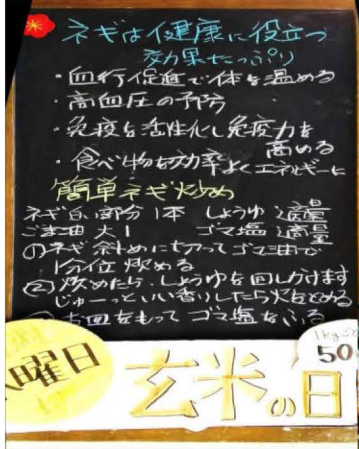 ネギは健康に役立つ
効果たっぷり
・血行促進で体を温める
・高血圧の予防
・免疫を活性化し免疫力を
高める
・食べ物を効率よくエネルギーに
簡単ネギ炒め
ネギ白い部分1本 しょうゆ適量
ごま油 大1 ゴマ塩 適量
①ネギ斜めに切ってゴマ油で
1分位 炒める
②炒めたら、しょうゆを回しかけます
じゅーっといい香りしたら火をとめる
お皿をもって ゴマ塩をふる
曜日
玄米の日
1kg
50